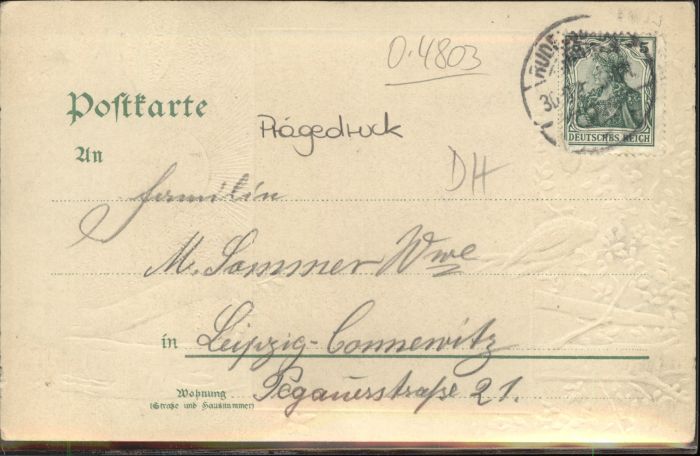 0.4803
5
DEUTSCHES REICH
Postkarte
Prägedruck
An
DH
Familie
M. Sommer Wwe
in Leipzig-Connewitz
Wohnung
(Straße und Hausnummer)
Pegauerstraße 21.